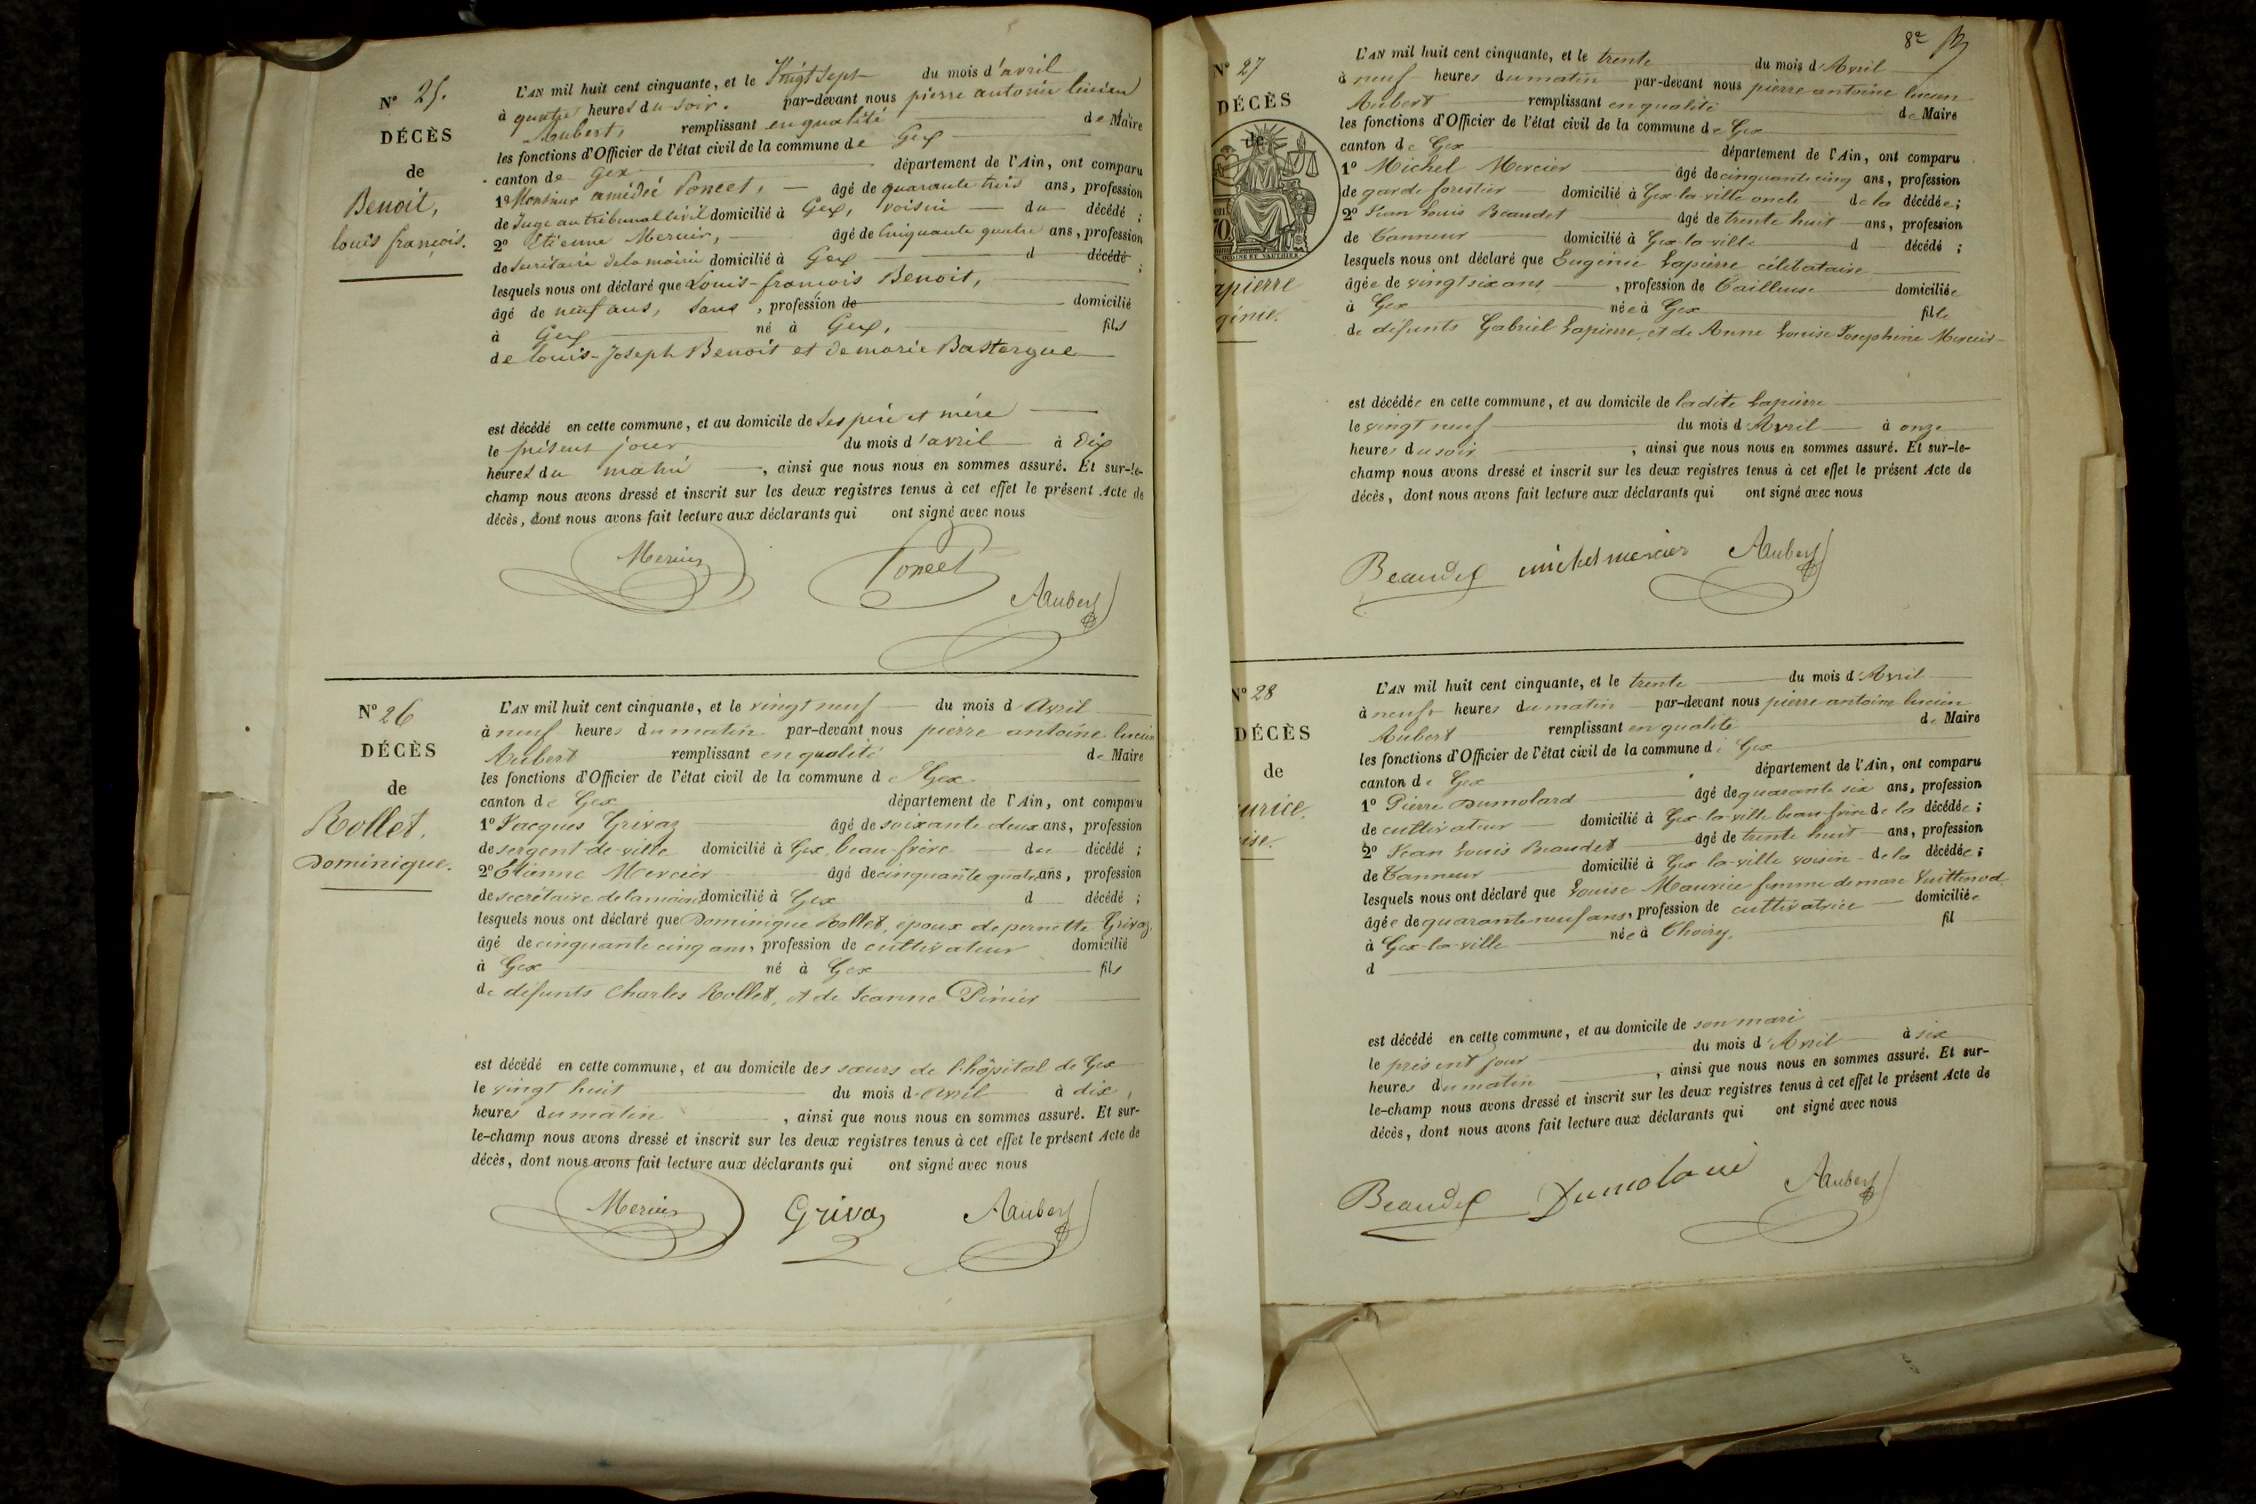 N° 25.
DÉCÈS
de
Benoit,
louis françois.
L'AN mil huit cent cinquante, et le Vingt sept du mois d'avril
à quatre heures du soir. par-devant nous pierre antoine lucien
Aubert, remplissant en qualité de Maire
les fonctions d'Officier de l'état civil de la commune de Gex
canton de Gex département de l'Ain, ont comparu
1° Monsieur amédée Poncet, âgé de quarante trois ans, profession
de Juge au tribunal civil domicilié à Gex, voisin du décédé ;
2° Etienne Mercier, âgé de Cinquante quatre ans, profession
de Secrétaire de la mairie domicilié à Gex d décédé ;
lesquels nous ont déclaré que Louis-francois Benoit,
âgé de neuf ans, sans, profession de domicilié
à Gex né à Gex, fils
de louis-Joseph Benoit et de marie Bastergue
est décédé en cette commune, et au domicile de Ses père et mère
le présent jour du mois d'avril à Dix
heures du matin, ainsi que nous nous en sommes assuré. Et sur-le-
champ nous avons dressé et inscrit sur les deux registres tenus à cet effet le présent Acte de
décès, dont nous avons fait lecture aux déclarants qui ont signé avec nous
Mercier Poncet
Aubert
N° 26
DÉCÈS
de
Rollet,
Dominique.
L'AN mil huit cent cinquante, et le vingt neuf du mois d Avril
à neuf heures du matin par-devant nous pierre antoine lucien
Aubert remplissant en qualité de Maire
les fonctions d'Officier de l'état civil de la commune de Gex
canton de Gex département de l'Ain, ont comparu
1° Jacques Grivaz âgé de soixante deux ans, profession
de sergent de ville domicilié à Gex, beau-frère du décédé ;
2° Etienne Mercier âgé de cinquante quatre ans, profession
de secrétaire de la mairie domicilié à Gex d décédé ;
lesquels nous ont déclaré que Dominique Rollet, époux de pernette Grivaz,
âgé de cinquante cinq ans, profession de cultivateur domicilié
à Gex né à Gex fils
de défunts Charles Rollet, et de Jeanne Pinier
est décédé en cette commune, et au domicile des sœurs de l'hôpital de Gex
le vingt huit du mois d Avril à dix,
heures du matin, ainsi que nous nous en sommes assuré. Et sur-
le-champ nous avons dressé et inscrit sur les deux registres tenus à cet effet le présent Acte de
décès, dont nous avons fait lecture aux déclarants qui ont signé avec nous
Mercier Grivaz Aubert
8e
N° 27
DÉCÈS
de
apierre
génie.
L'AN mil huit cent cinquante, et le trente du mois d'Avril
à neuf heures du matin par-devant nous pierre antoine lucien
Aubert remplissant en qualité de Maire
les fonctions d'Officier de l'état civil de la commune de Gex
canton de Gex département de l'Ain, ont comparu
1° Michel Mercier âgé de cinquante cinq ans, profession
de garde forestier domicilié à Gex-la-ville oncle de la décédée ;
2° Jean Louis Beaudet âgé de trente huit ans, profession
de Tanneur domicilié à Gex-la-ville d décédé ;
lesquels nous ont déclaré que Eugénie Lapierre célibataire
âgée de vingt six ans, profession de Tailleuse domiciliée
à Gex née à Gex fille
de défunts Gabriel Lapierre, et de Anne Louise Josephine Mercier
est décédée en cette commune, et au domicile de ladite Lapierre
le vingt neuf du mois d'Avril à onze
heures du soir, ainsi que nous nous en sommes assuré. Et sur-le-
champ nous avons dressé et inscrit sur les deux registres tenus à cet effet le présent Acte de
décès, dont nous avons fait lecture aux déclarants qui ont signé avec nous
Beaudet michel mercier Aubert
N° 28
DÉCÈS
de
urice,
ise.
L'AN mil huit cent cinquante, et le trente du mois d'Avril
à neuf heures du matin par-devant nous pierre antoine lucien
Aubert remplissant en qualité de Maire
les fonctions d'Officier de l'état civil de la commune de Gex
canton de Gex département de l'Ain, ont comparu
1° Pierre Dumolard âgé de quarante six ans, profession
de cultivateur domicilié à Gex-la-ville beau-frère de la décédée ;
2° Jean Louis Beaudet âgé de trente huit ans, profession
de Tanneur domicilié à Gex-la-ville voisin de la décédée ;
lesquels nous ont déclaré que Louise Maurice femme de marc Vuittenod
âgée de quarante neuf ans, profession de cultivatrice domiciliée
à Gex-la-ville née à Choiry, fil
d
est décédé en cette commune, et au domicile de son mari
le présent jour du mois d'Avril à six
heures du matin, ainsi que nous nous en sommes assuré. Et sur-
le-champ nous avons dressé et inscrit sur les deux registres tenus à cet effet le présent Acte de
décès, dont nous avons fait lecture aux déclarants qui ont signé avec nous
Beaudet Dumolard Aubert